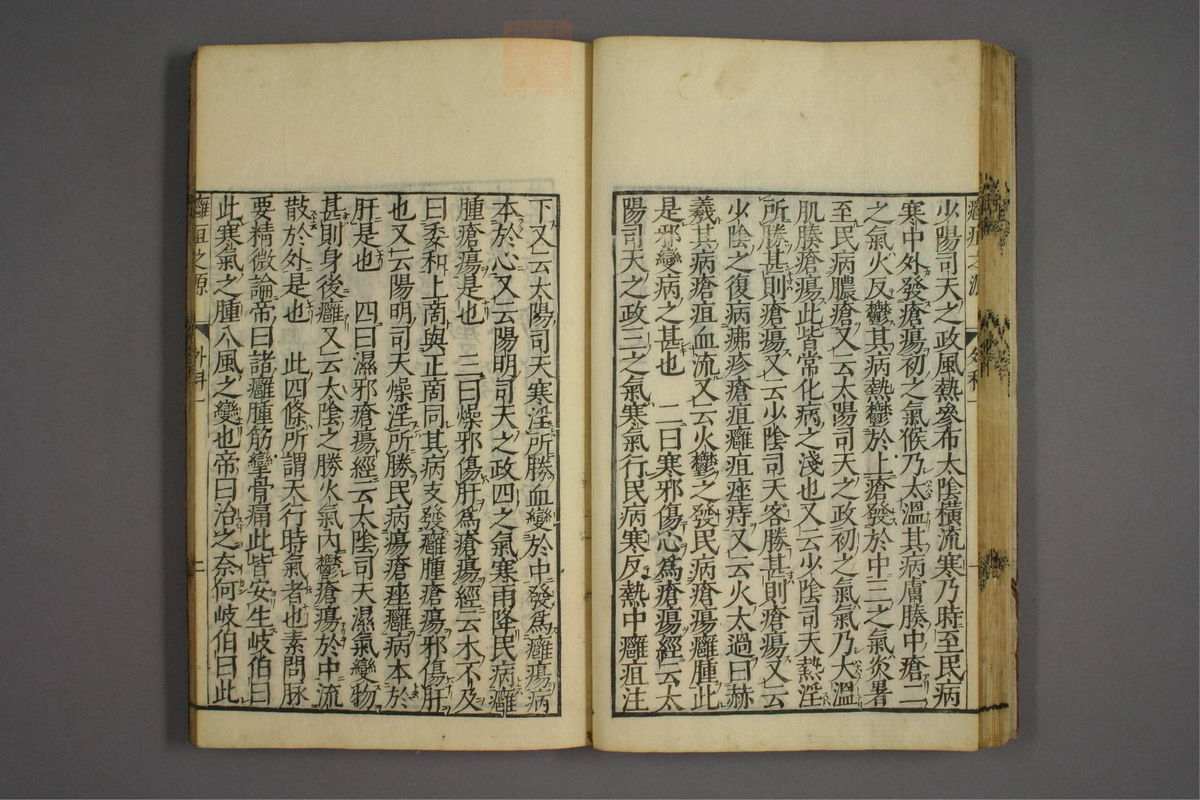 少陽司天之政風熱參布太陰橫流寒乃時至民病
寒中外發瘡瘍初之氣候乃太溫其病膚腠中瘡二
之氣火反欝其病熱欝於上瘡發於中三之氣炎暑
至民病膿瘡又云太陽司天之政初之氣氣乃大溫
肌腠瘡瘍此皆常化病之淺也又云少陰司天熱淫
所勝甚則瘡瘍又云少陰司天客勝甚則瘡瘍又云
少陰之復病疿疹瘡疽癰疽痤痔又云火太過曰赫
羲其病瘡疽血流又云火欝之發民病瘡瘍癰腫此
是邪變病之甚也 二曰寒邪傷心爲瘡瘍經云太
陽司天之政三之氣寒氣行民病寒反熱中癰疽注
下又云太陽司天寒淫所勝血變於中發爲癰瘍病
本於心又云陽明司天之政四之氣寒雨降民病癰
腫瘡瘍是也 三曰燥邪傷肝爲瘡瘍經云木不及
曰委和上商與正商同其病支發癰腫瘡瘍邪傷肝
也又云陽明司天燥淫所勝民病瘍瘡痤癰病本於
肝是也 四曰濕邪瘡瘍經云太陰司天濕氣變物
甚則身後癰又云太陰之勝火氣內欝瘡瘍於中流
散於外是也 此四條所謂天行時氣者也素問脉
要精微論帝曰諸癰腫筋攣骨痛此皆安生岐伯曰
此寒氣之腫八風之變也帝曰治之奈何岐伯曰此
癰疽之源 外科一 二